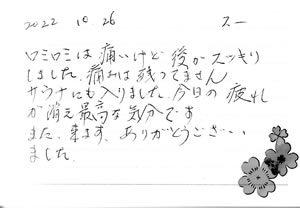 2022 10 26 スー
ロミロミは痛いけど後がスッキリ
しました。痛みは残ってません
サウナにも入りました。今日の疲れ
が消え最高な気分です
また、来ます、ありがとうござい
ました。